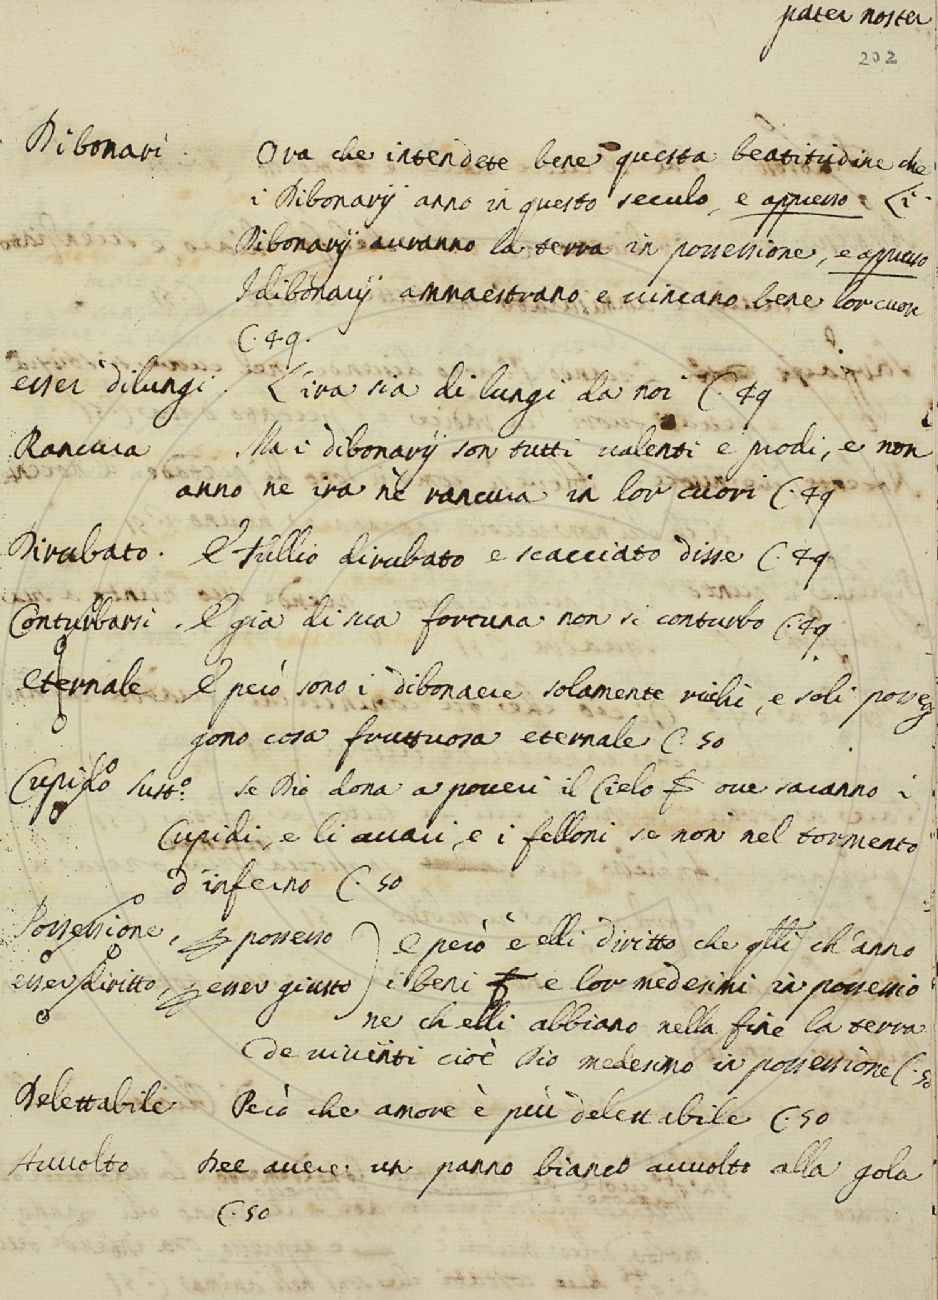 pater noster
202
Dibonari Ora che intendete bene questa beatitudine che
i Dibonarij anno in questo seculo, e appresso Li
Dibonarij auranno la terra in possessione, e appresso
I dibonarij ammaestrano e uincano bene lor cuore
C. 49.
esser dilungi L'ira sia di lungi da noi C. 49
Rancura Ma i dibonarij son tutti ualenti e prodi, e non
anno ne ira ne rancura in lor cuori C. 49
Dirubato. E Tullio dirubato e scacciato disse C. 49
Conturbarsi E gia di sua fortuna non si conturbo C. 49
eternale E però sono i dibonaere solamente richi, e soli posseg
gono cosa fruttuosa eternale C. 50
Cupido sust.º se Dio dona a poueri il Cielo oue saranno i
Cupidi, e li auari, e i felloni se non nel tormento
d'inferno C. 50
Possessione, possesso e però è elli diritto che qlli ch'anno
esser diritto, esser giusto i beni e lor medesimi in possessio
ne ch elli abbiano nella fine la terra
de uiuenti cioè Dio medesmo in possessione C. 50
Delettabile Però che amore è più delettabile C. 50
Auuolto Dee auere un panno bianco auuolto alla gola
C. 50